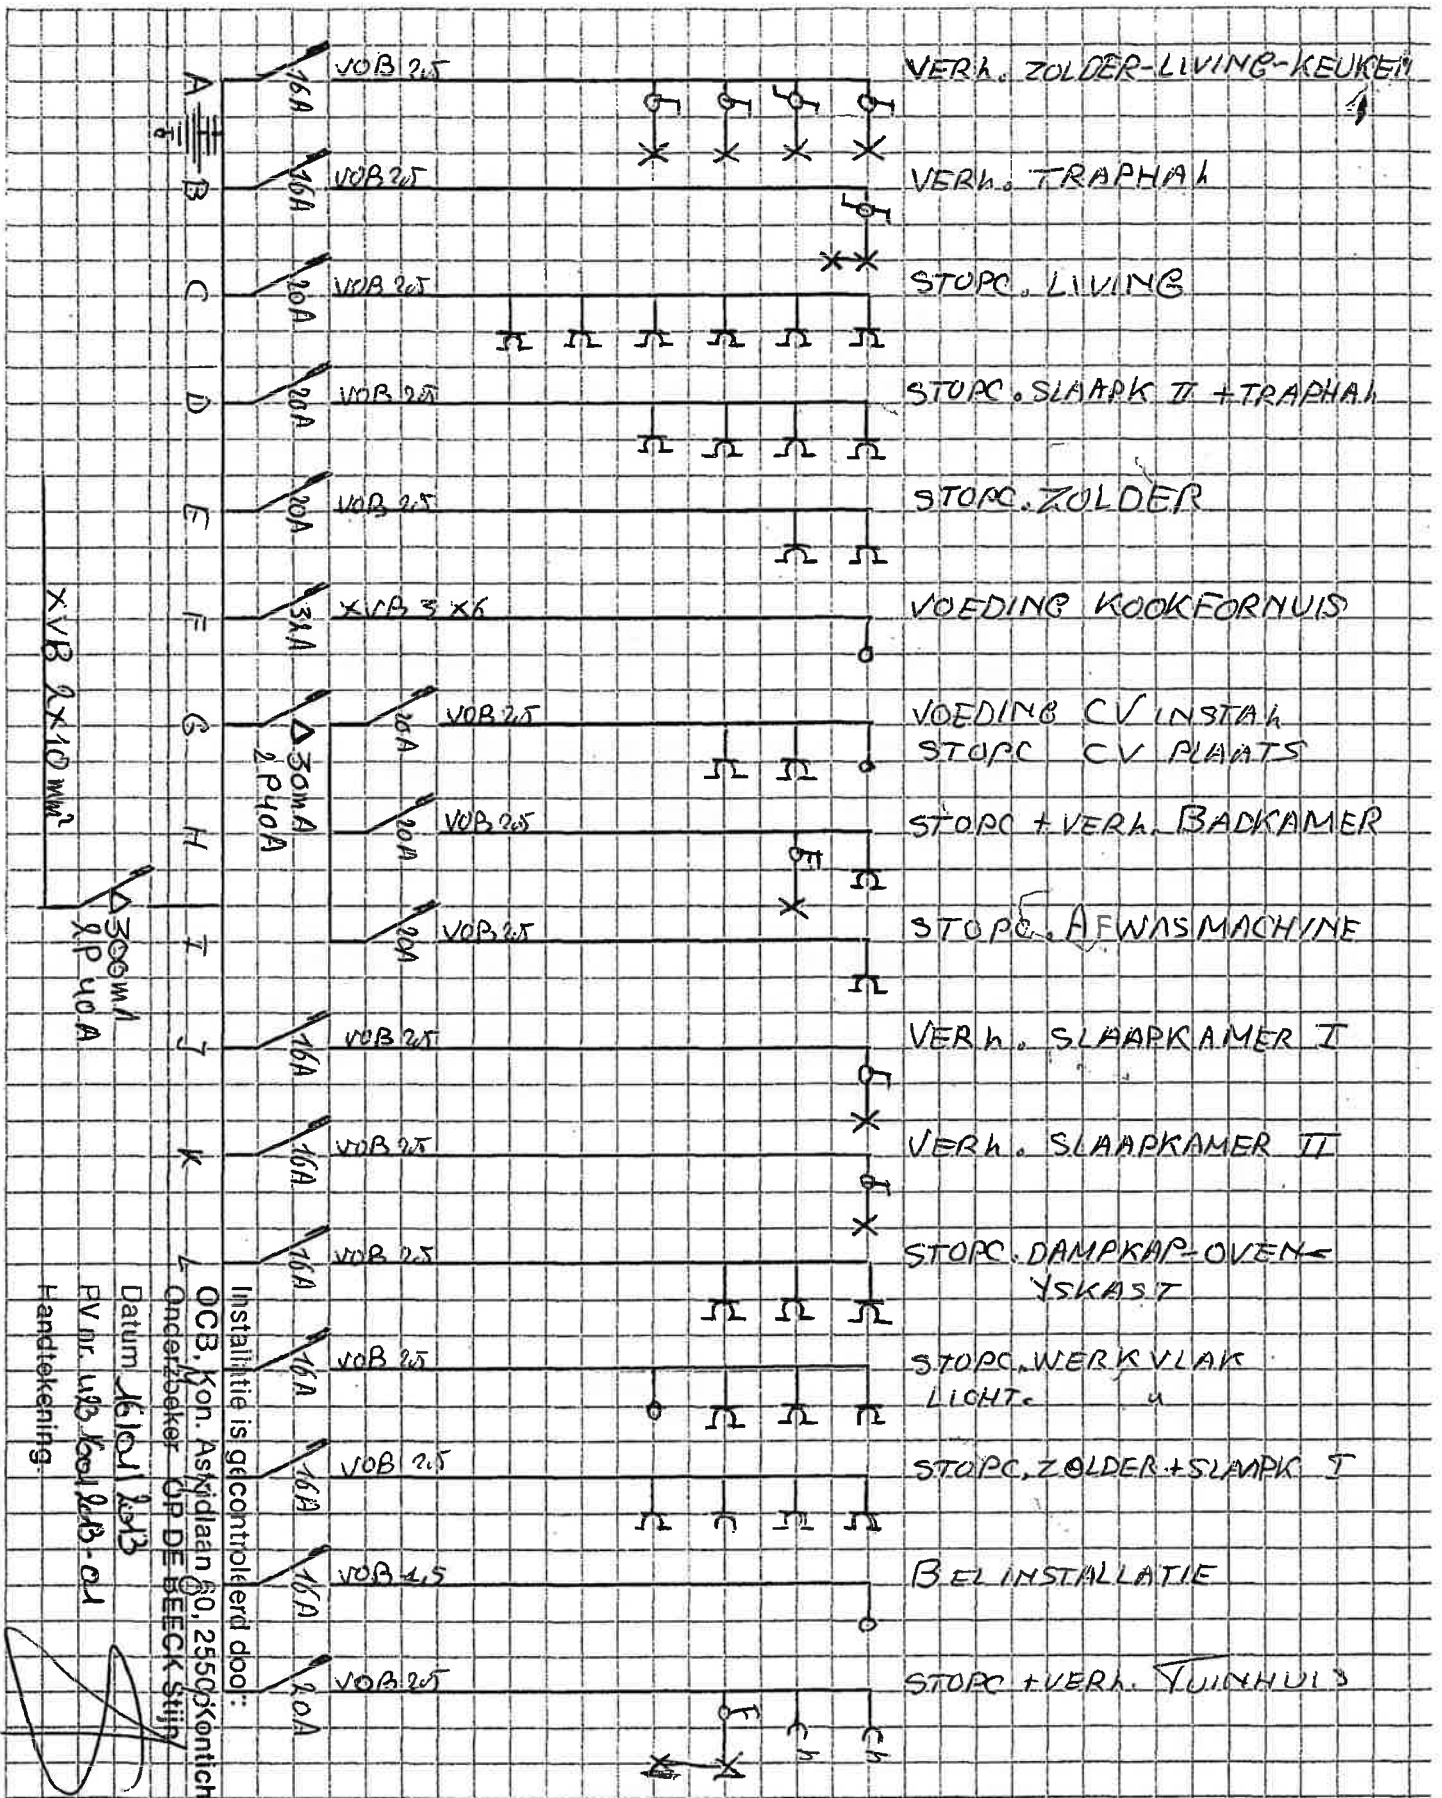 A
16A
VOB 2,5
VERL. ZOLDER-LIVING-KEUKEN
B
16A
VOB 2,5
VERL. TRAPHAL
C
20A
VOB 2,5
STOPC. LIVING
D
20A
VOB 2,5
STOPC. SLAAPK II + TRAPHAL
E
20A
VOB 2,5
STOPC. ZOLDER
F
32A
XVB 3 X6
VOEDING KOOKFORNUIS
G
Δ 30mA
2P40A
20A
VOB 2,5
VOEDING CV INSTAL
STOPC CV PLAATS
H
20A
VOB 2,5
STOPC + VERL. BADKAMER
I
20A
VOB 2,5
STOPC. AFWASMACHINE
XVB 2x10mm²
Δ 300mA
2P 40A
J
16A
VOB 2,5
VERL. SLAAPKAMER I
K
16A
VOB 2,5
VERL. SLAAPKAMER II
L
16A
VOB 2,5
STOPC. DAMPKAP-OVEN-
YSKAST
16A
VOB 2,5
STOPC. WERKVLAK
LICHT. "
16A
VOB 2,5
STOPC. ZOLDER + SLAAPK I
16A
VOB 1,5
BELINSTALLATIE
20A
VOB 2,5
STOPC + VERL. TUINHUIS
Installatie is gecontroleerd door:
OCB, Kon. Astridlaan 60, 2550 Kontich
Onderzoeker OP DE BEECK Stijn
Datum 16/01/2013
PV nr.
Handtekening